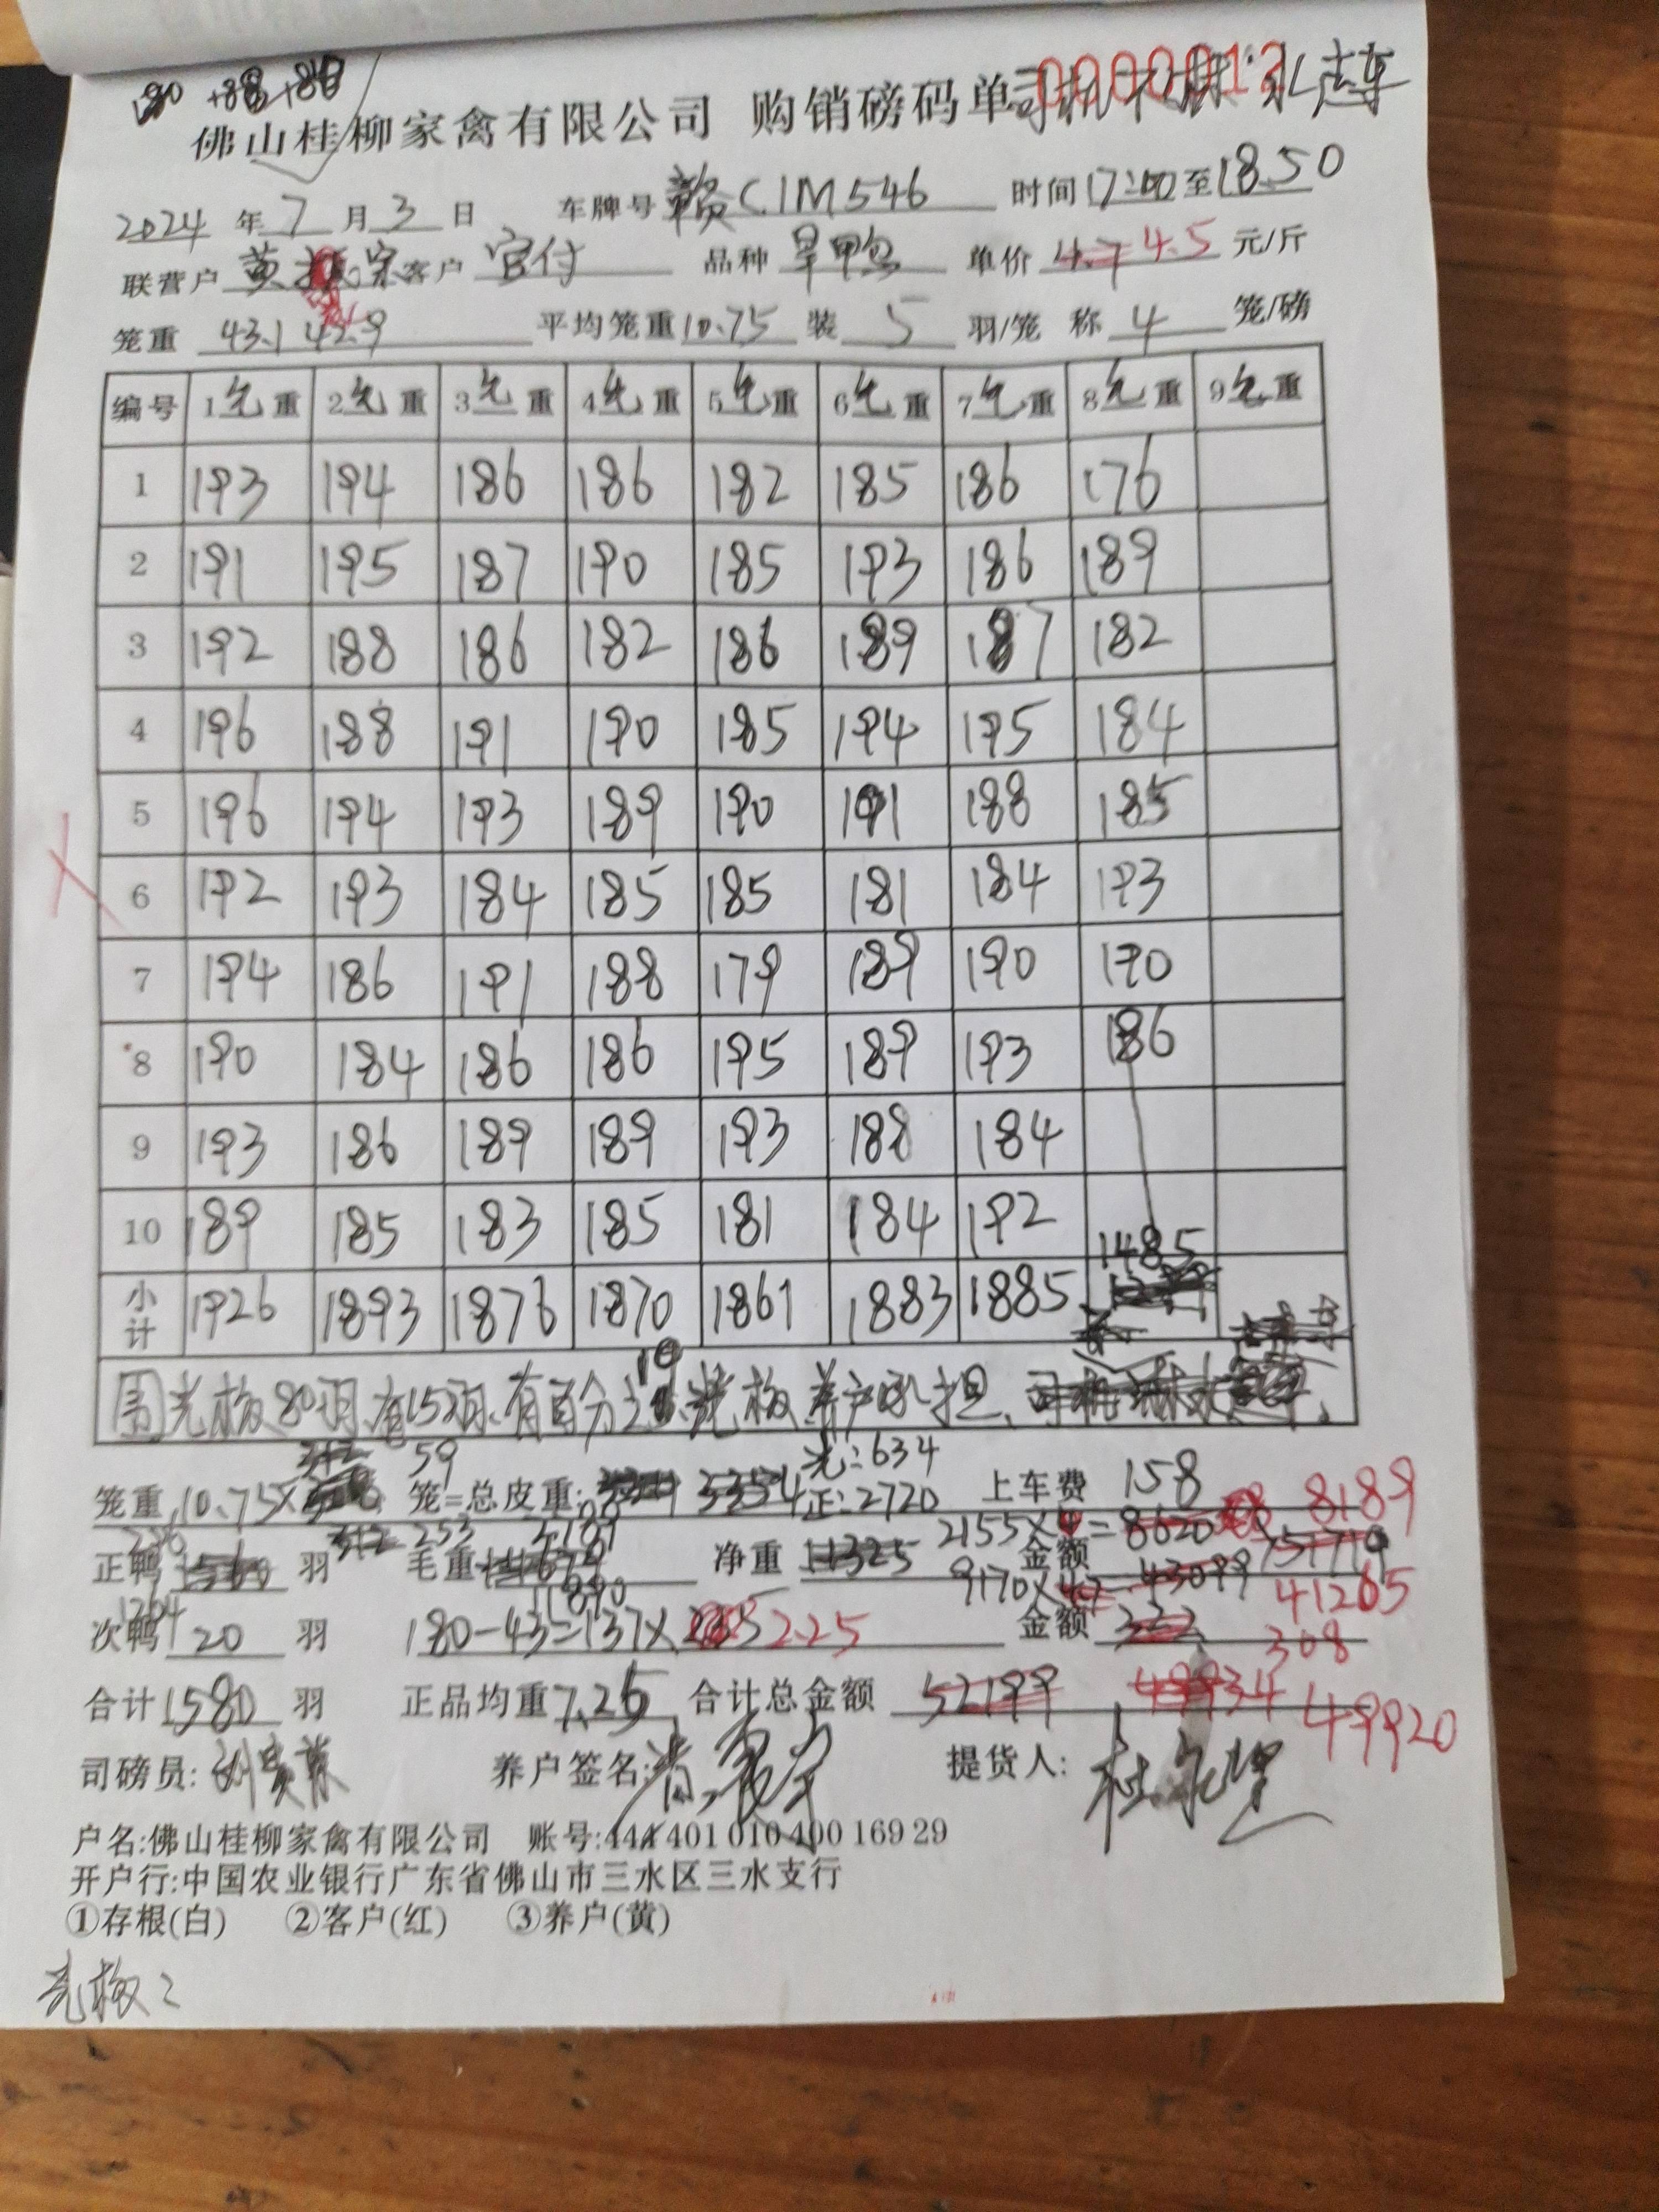 180 +88+86
佛山桂柳家禽有限公司 购销磅码单 0000012
2024 年 7 月 3 日 车牌号 赣C1M546 时间 17:00 至 18.50
联营户 黄 宗 客户 官付 品种 旱鸭 单价 4.7 4.5 元/斤
笼重 43.1 42.9 平均笼重 10.75 装 5 羽/笼 称 4 笼/磅
编号 1毛重 2毛重 3毛重 4毛重 5毛重 6毛重 7毛重 8毛重 9毛重
1 193 194 186 186 182 185 186 176
2 191 195 187 190 185 193 186 189
3 192 188 186 182 186 189 187 182
4 196 188 191 190 185 194 195 184
5 196 194 193 189 190 191 188 185
6 192 193 184 185 185 181 184 193
7 194 186 191 188 179 189 190 190
8 190 184 186 186 195 189 193 186
9 193 186 189 189 193 188 184
10 189 185 183 185 181 184 192
1485
小计 1926 1893 1876 1870 1861 1883 1885
光板80羽 有15羽 有百分之10 光板养户承担
59 光:634
笼重 10.75× 笼=总皮重: 3354 正:2720 上车费 158 8189
236 312 253 2155×4=8620
正鸭 羽 毛重 净重 11325 金额 51719
1264 11890 9170×4.7 43099 41265
次鸭 20 羽 180-43=137× 2.25 金额 322 308
合计 1580 羽 正品均重 7.26 合计总金额 52199 49934 49920
司磅员: 养户签名: 提货人: 杜
户名:佛山桂柳家禽有限公司 账号:444 401 010 400 169 29
开户行:中国农业银行广东省佛山市三水区三水支行
①存根(白) ②客户(红) ③养户(黄)